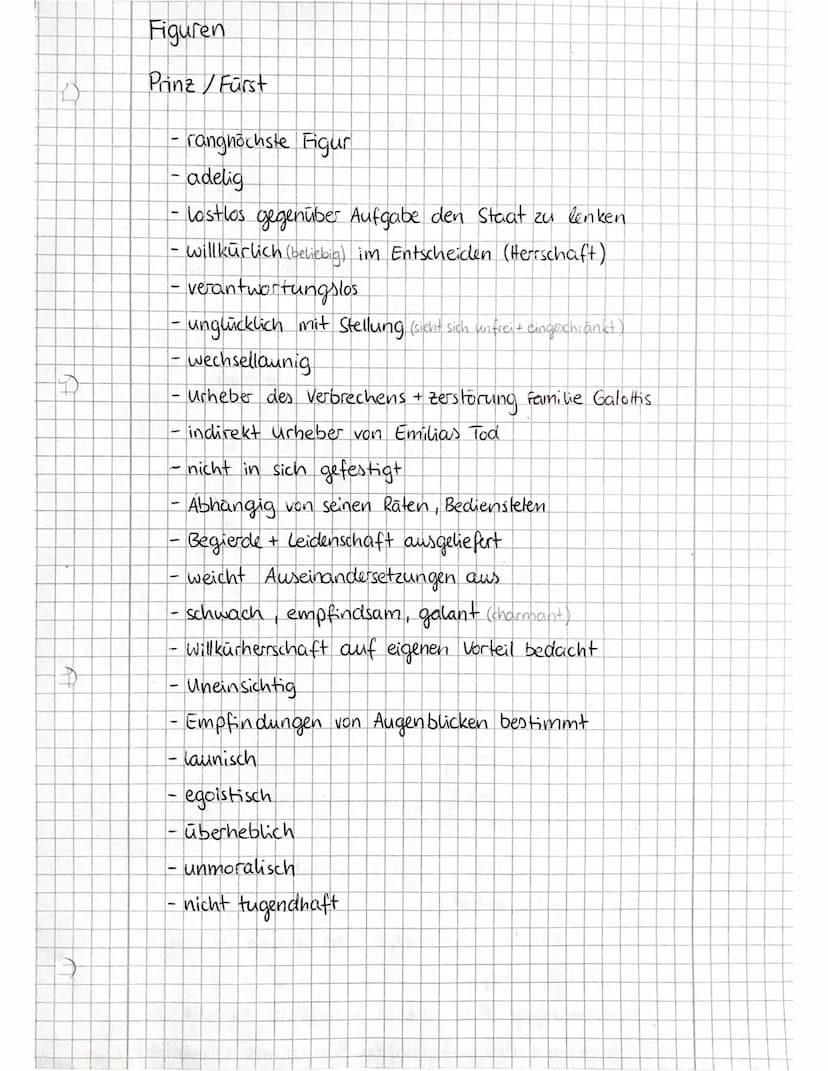 Figuren
Prinz / Fürst
- ranghöchste Figur
- adelig
- lostlos gegenüber Aufgabe den Staat zu lenken
- willkürlich (beliebig) im Entscheiden (Herrschaft)
- verantwortungslos
- unglücklich mit Stellung (sieht sich unfrei + eingeschränkt)
- wechsellaunig
- Urheber des Verbrechens + zerstörung familie Galottis
- indirekt Urheber von Emilias Tod
- nicht in sich gefestigt
- Abhängig von seinen Räten, Bediensteten
- Begierde + Leidenschaft ausgeliefert
- weicht Auseinandersetzungen aus
- schwach, empfindsam, galant (charmant)
- Willkürherrschaft auf eigenen Vorteil bedacht
- Uneinsichtig
- Empfindungen von Augenblicken bestimmt
- launisch
- egoistisch
- überheblich
- unmoralisch
- nicht tugendhaft